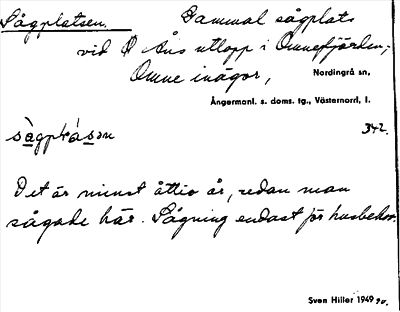 Sågplatsen. Gammal sågplats
vid Ø Åns utlopp i Omnefjärden,
Omne inägor, Nordingrå sn,
Ångermanl. s. doms. tg., Västernorrl. l.
342.
Det är minst åttio år, sedan man
sågade här. Sågning endast för husbehov.
Sven Hiller 1949